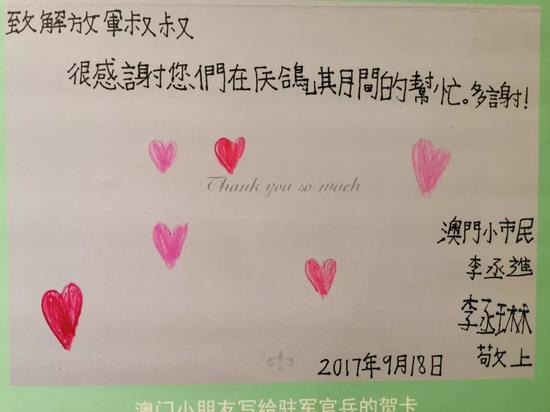 致解放軍叔叔
很感謝您們在天鴿期間的幫忙。多謝!
Thank you so much
澳門小市民
李丞進
李丞琳
敬上
2017年9月18日
澳门小朋友写给驻军官兵的贺卡